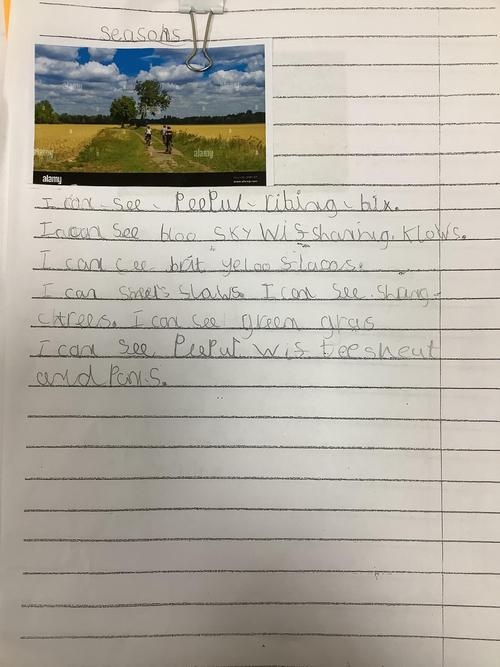 seasons
alamy
I can see PeePul ribing bix.
I can See bloo SKY Wif sharing KLows.
I can cee brit yeloo flaoos.
I can Smel's flaws. I can See. Sharg-
chrees. I can see green gras
I can See PeePul Wif teesheut
and Pans.